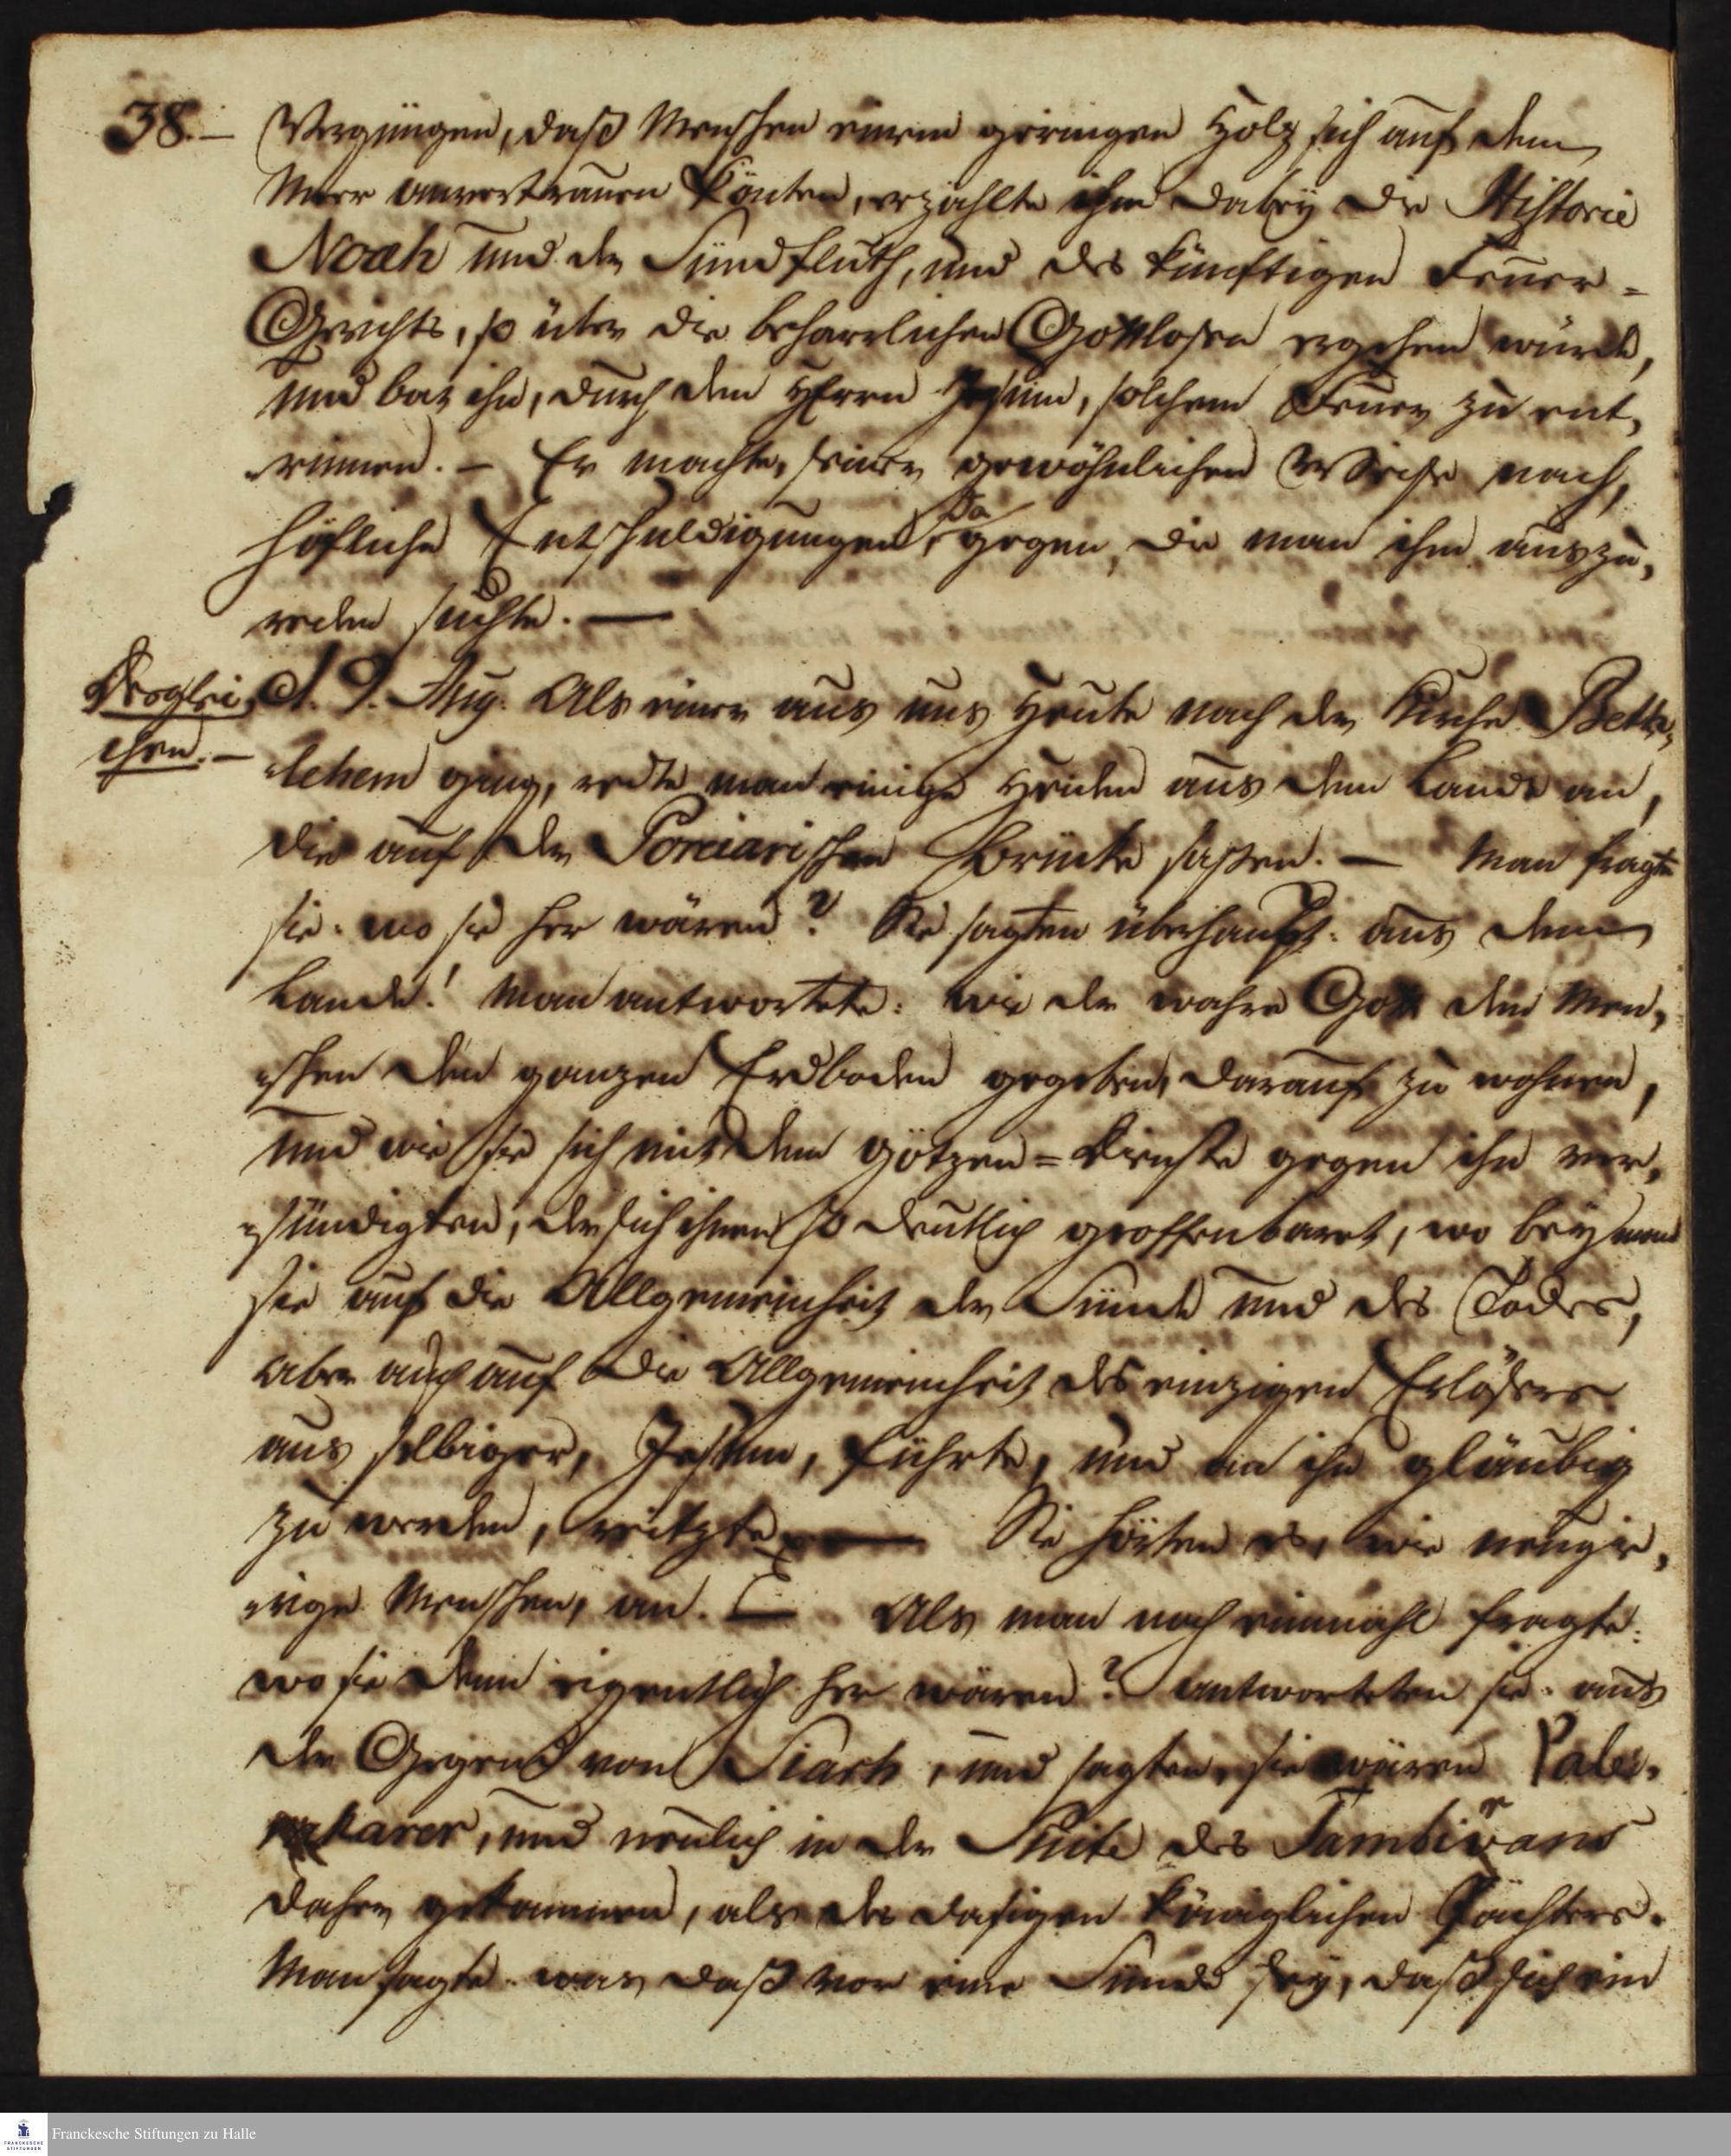 38.–
Vergnügen, daß Menschen einem geringen Holz sich auf dem
Meer anvertrauen könten, erzählte ihm dabey die Historie
Noah und der Sündfluth, und des künftigen Feuer=
Gerichts, so über die beharrlichen Gottlosen ergehen würde,
und bat ihn, durch den HErrn Jesum, solchem Feuer zu ent,
rinnen. – Er machte, seiner gewöhnlichen Weise nach,
höfliche Entschuldigungen, dagegen, die man ihm auszu,
reden suchte. —
Desglei,
chen. –
d. 9. Aug. Als einer aus uns heute nach der Kirche Beth,
lehem ging, redte man einige Heiden aus dem Lande an,
die auf der Poreiarischen Brücke saßen. — Man fragte
sie: wo sie her wären? Sie sagten überhaupt: aus dem
Lande! Man antwortete: wie der wahre Gott den Men,
schen den ganzen Erdboden gegeben, darauf zu wohnen,
und wie sie sich mit dem Götzen=Dienste gegen ihn ver,
sündigten, der sich ihnen so deutlich geoffenbaret, wo bey man
sie auf die Allgemeinheit der Sünde und des Todes,
aber auch auf die Allgemeinheit des einzigen Erlösers
aus selbiger, Jesum, führte, und an ihn gläubig
zu werden, reitzte. — Sie hörten es, wie neugie,
rige Menschen, an. — Als man noch einmahl fragte:
wo sie denn eigentlich her wären? antworteten sie: aus
der Gegend von Siarh, und sagten, sie wären Palei,
akarer, und neulich in der Suite des Tambirans
daher gekommen, als des dasigen königlichen Pächters.
Man sagte: was daß vor eine Sünde sey, daß sich ein
Franckesche Stiftungen zu Halle
FRANCKESCHE
STIFTUNGEN